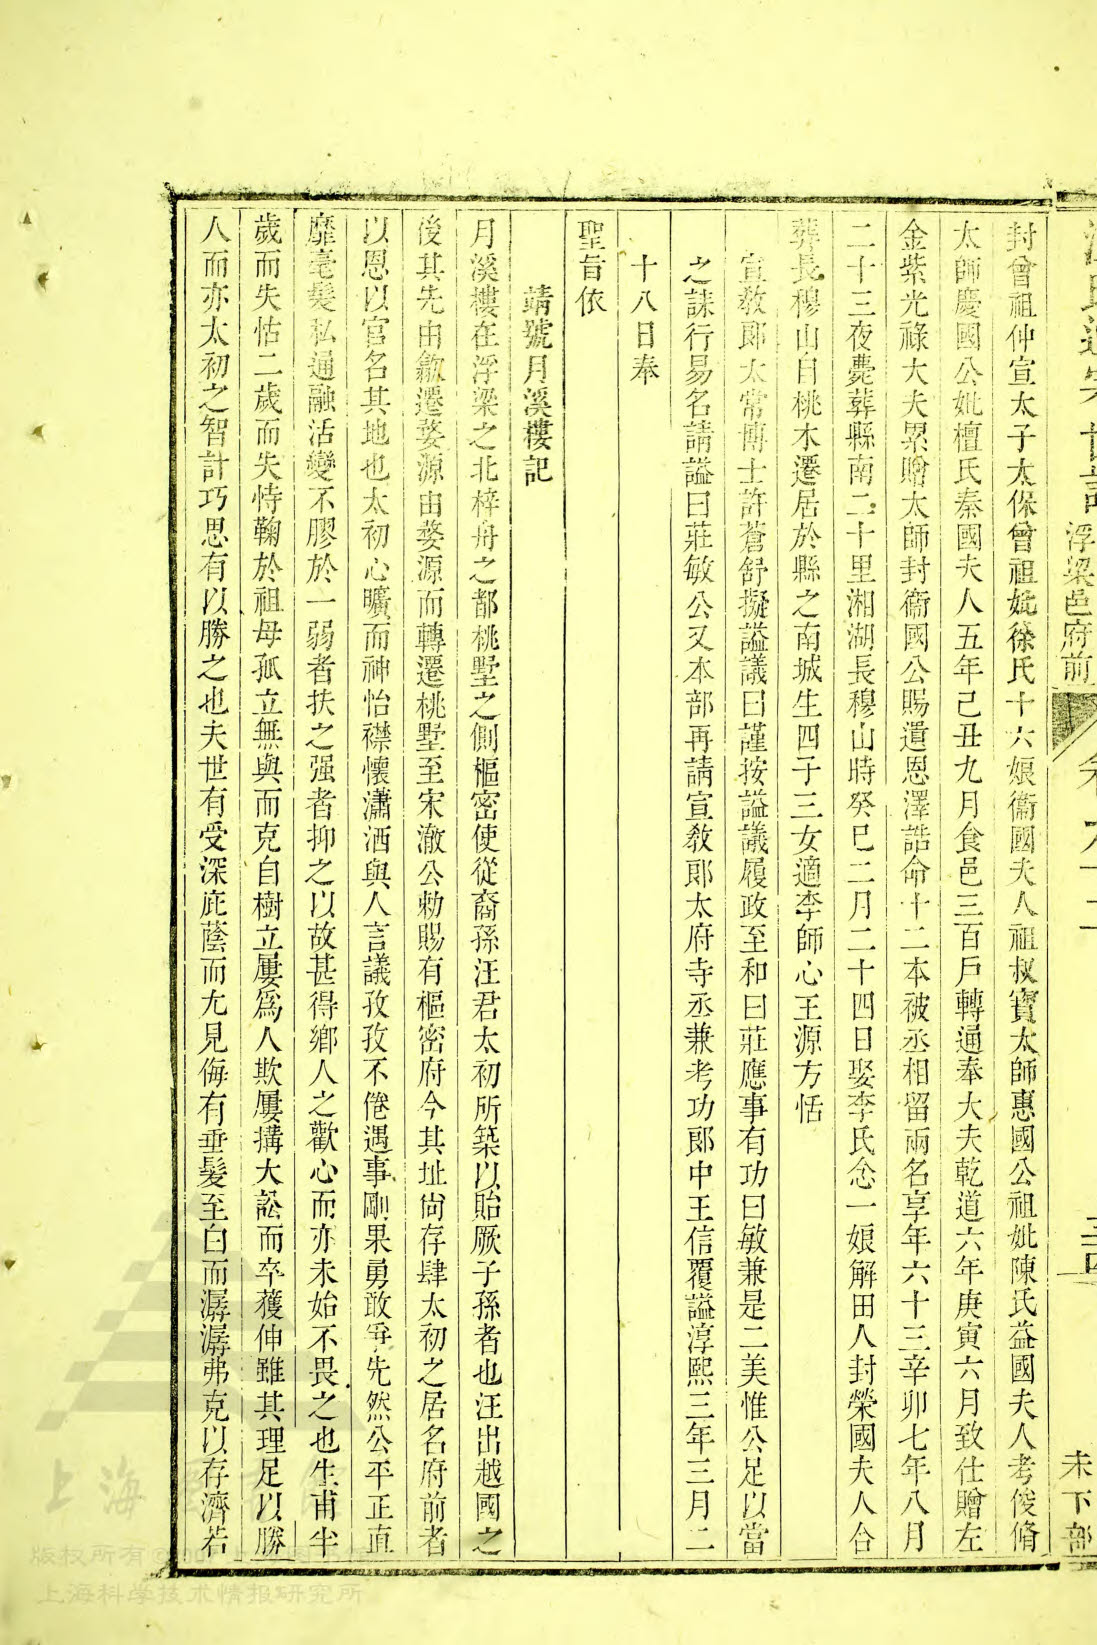 汪氏通宗世譜 浮梁邑府前 卷九十二 三四 未下部
封曾祖仲宣太子太保曾祖妣徐氏十六娘衞國夫人祖叔寶太師惠國公祖妣陳氏益國夫人考俊脩
太師慶國公妣檀氏秦國夫人五年己丑九月食邑三百戶轉通奉大夫乾道六年庚寅六月致仕贈左
金紫光祿大夫累贈太師封衞國公賜遺恩澤誥命十二本被丞相留兩名享年六十三辛卯七年八月
二十三夜薨葬縣南二十里湘湖長穆山時癸巳二月二十四日娶李氏念一娘解田人封榮國夫人合
葬長穆山自桃木遷居於縣之南城生四子三女適李師心王源方恬
宣敎郎太常博士許蒼舒擬謚議曰謹按謚議履政至和曰莊應事有功曰敏兼是二美惟公足以當
之誄行易名請謚曰莊敏公又本部再請宣敎郎太府寺丞兼考功郎中王信覆謚淳熙三年三月二
十八日奉
聖旨依
靖號月溪樓記
月溪樓在浮梁之北梓舟之都桃墅之側樞密使從裔孫汪君太初所築以貽厥子孫者也汪出越國之
後其先由歙遷婺源由婺源而轉遷桃墅至宋澈公勅賜有樞密府今其址尙存肆太初之居名府前者
以恩以官名其地也太初心曠而神怡襟懷瀟洒與人言議孜孜不倦遇事剛果勇敢爭先然公平正直
靡毫髮私通融活變不膠於一弱者扶之强者抑之以故甚得鄉人之歡心而亦未始不畏之也生甫半
歲而失怙二歲而失恃鞠於祖母孤立無與而克自樹立屢爲人欺屢搆大訟而卒獲伸雖其理足以勝
人而亦太初之智計巧思有以勝之也夫世有受深庇蔭而尢見侮有垂髮至白而潺潺弗克以存濟若
上海圖書館
版权所有©2007上海图书馆
上海科学技术情报研究所